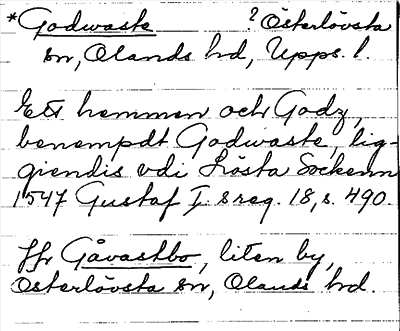 *Godwaste ? Österlövsta
sn, Olands hd, Upps. l.
Ett hemmen och Godz,
benempdt Godwaste, lig-
giendis vdi Lösta Sockenn
1547 Gustaf I:s reg. 18, s. 490.
Jfr Gåvastbo, liten by,
Österlövsta sn, Olands hd.